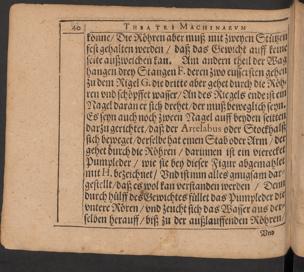 40 THEATRI MACHINARVM
könne / Die Röhren aber muß mit zweyen Stützen
fest gehalten werden / daß das Gewicht auff keine
seite außweichen kan. Am andern theil der Wag
hangen drey Stangen F. deren zwo eussersten gehen
zu dem Rigel G. die dritte aber gehet durch die Röh
ren vnd schöpffet wasser / An des Riegels ende ist ein
Nagel daran er sich drehet / der muß beweglich seyn.
Es seyn auch noch zween Nagel auff beyden seitten
darzu gerichtet / daß der Artelabus oder Stockhalß
sich beweget / derselbe hat einen Stab oder Arm / der
gehet durch die Röhren / darumen ist ein viereckt
Pumpleder / wie sie bey dieser Figur abgemahlet
mit H. bezeichnet / Vnd ist nun alles gnugsam dar-
gestellt / daß es wol kan verstanden werden / Denn
durch hülff des Gewichtes füllet das Pumpleder die
vntere Rören / vnd zeucht sich das Wasser aus der-
selben herauff / biß zu der außlauffenden Röhren /
Vnd